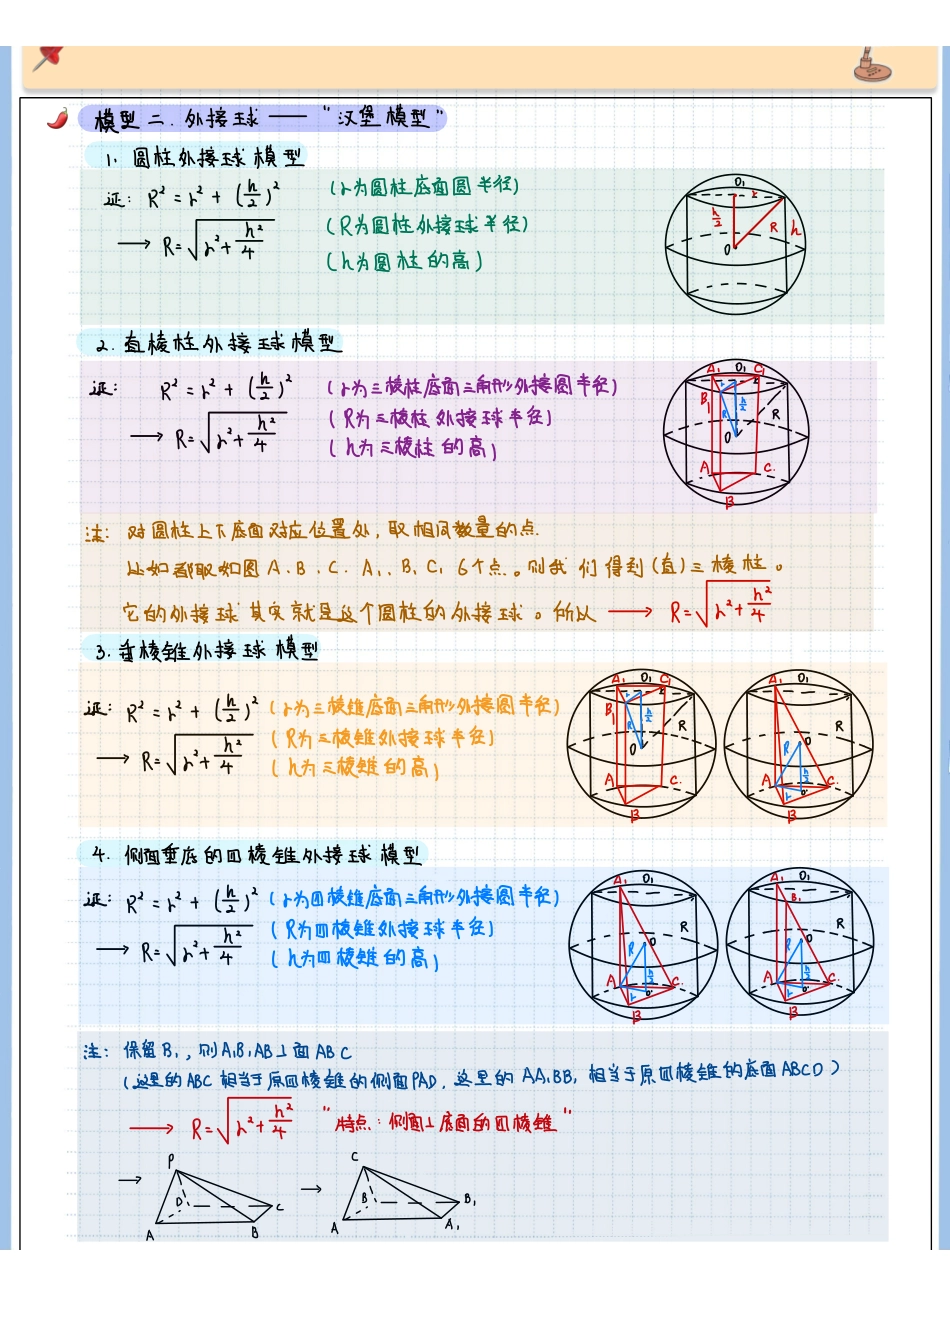 模型二.外接球——“汉堡模型”
1.圆柱外接球模型
证: R² = r² + (h/2)² (r为圆柱底面圆半径)
→ R=√(r²+h²/4) (R为圆柱外接球半径)
(h为圆柱的高)
O₁
r
h/2
R
h
O
2.直棱柱外接球模型
证: R² = r² + (h/2)² (r为三棱柱底面三角形外接圆半径)
→ R=√(r²+h²/4) (R为三棱柱外接球半径)
(h为三棱柱的高)
A₁ O₁ C₁
r
B₁ h/2
R R
O
A C.
B
注: 对圆柱上下底面对应位置处,取相同数量的点.
比如都取如图A.B.C.A₁.B₁C₁ 6个点。则我们得到(直)三棱柱。
它的外接球其实就是这个圆柱的外接球。所以 → R=√(r²+h²/4)
3.垂棱锥外接球模型
证: R² = r² + (h/2)² (r为三棱锥底面三角形外接圆半径)
→ R=√(r²+h²/4) (R为三棱锥外接球半径)
(h为三棱锥的高)
A₁ O₁ C₁
r
B₁ h/2
R R
O
A C.
B
A₁ O₁
R
R O
A h/2 C.
r O'
B
4.侧面垂底的四棱锥外接球模型
证: R² = r² + (h/2)² (r为四棱锥底面三角形外接圆半径)
→ R=√(r²+h²/4) (R为四棱锥外接球半径)
(h为四棱锥的高)
A₁ O₁
R
R O
A h/2 C.
r O'
B
A₁ O₁
B₁
R
R O
A h/2 C.
r O'
B
注: 保留B₁,则A₁B₁AB⊥面ABC
(这里的ABC相当于原四棱锥的侧面PAD,这里的AA₁BB₁相当于原四棱锥的底面ABCD)
→ R=√(r²+h²/4) “特点:侧面⊥底面的四棱锥”
→ P
D
C
A B
→ C
B
B₁
A A₁